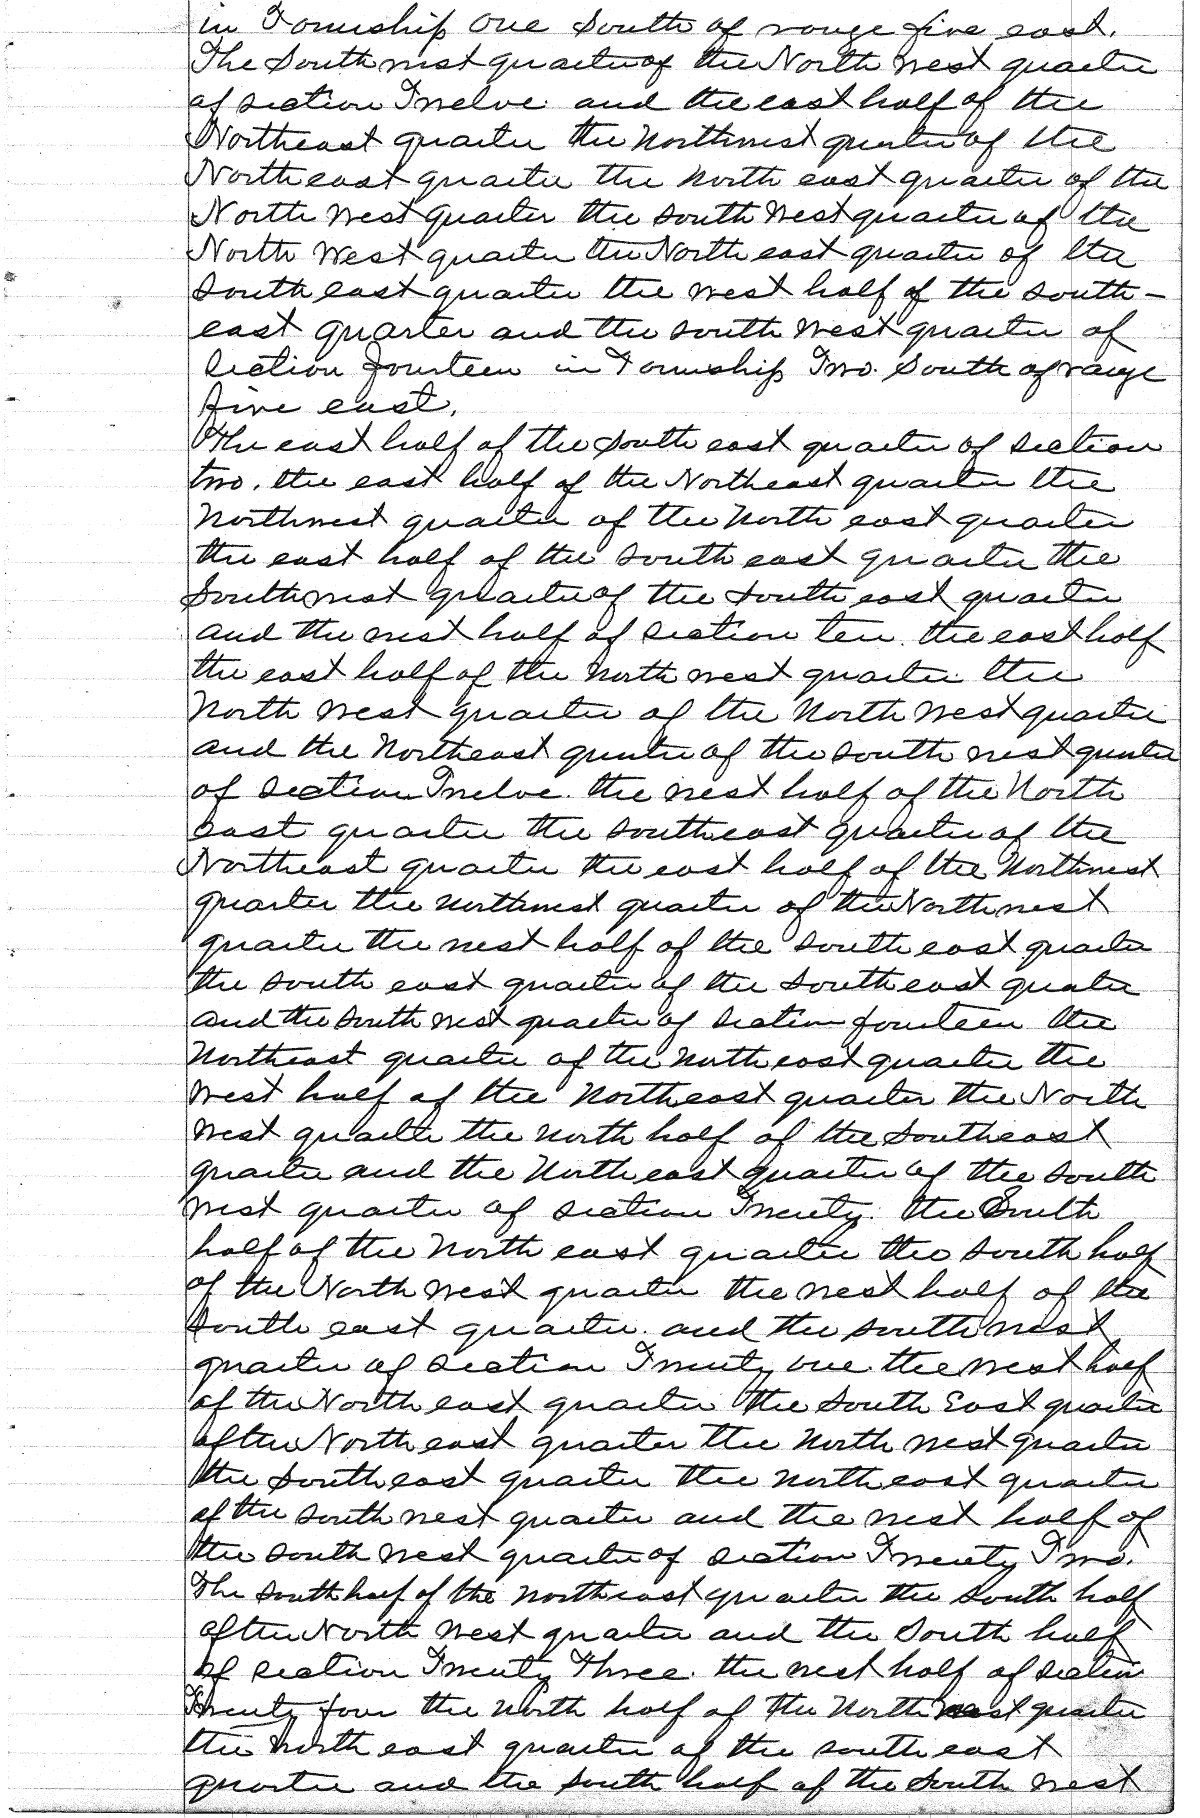 in Township One South of range five east.
The South west quarter of the North West quarter
of section Twelve and the east half of the
Northeast quarter the Northwest quarter of the
North east quarter the North east quarter of the
North West quarter the south West quarter of the
North West quarter the North east quarter of the
South east quarter the West half of the south-
east quarter and the south West quarter of
section fourteen in Township Two. South of range
five east.
The east half of the South east quarter of section
two. the east half of the Northeast quarter the
Northwest quarter of the North east quarter
the east half of the south east quarter the
Southwest quarter of the South east quarter
and the west half of section ten. the east half
the east half of the North west quarter. the
North West quarter of the North West quarter
and the Northeast quarter of the south west quarter
of section Twelve. the west half of the North
East quarter the southeast quarter of the
Northeast quarter the east half of the Northwest
quarter the northwest quarter of the Northwest
quarter the west half of the south east quarter
the south east quarter of the South east quarter
and the South West quarter of section fourteen the
Northeast quarter of the North east quarter the
West half of the Northeast quarter the North
West quarter the North half of the Southeast
quarter and the North east quarter of the South
West quarter of section Twenty. the South
half of the North east quarter the south half
of the North West quarter the west half of the
South east quarter. and the southwest
quarter of section Twenty one. the West half
of the North east quarter the South East quarter
of the North east quarter the North West quarter
the South east quarter the North east quarter
of the south west quarter and the west half of
the south West quarter of section Twenty Two.
The South half of the Northeast quarter the South half
of the North West quarter and the South half
of section Twenty Three. the west half of section
Twenty four the North half of the North east quarter
the North east quarter of the south east
quarter and the South half of the South West